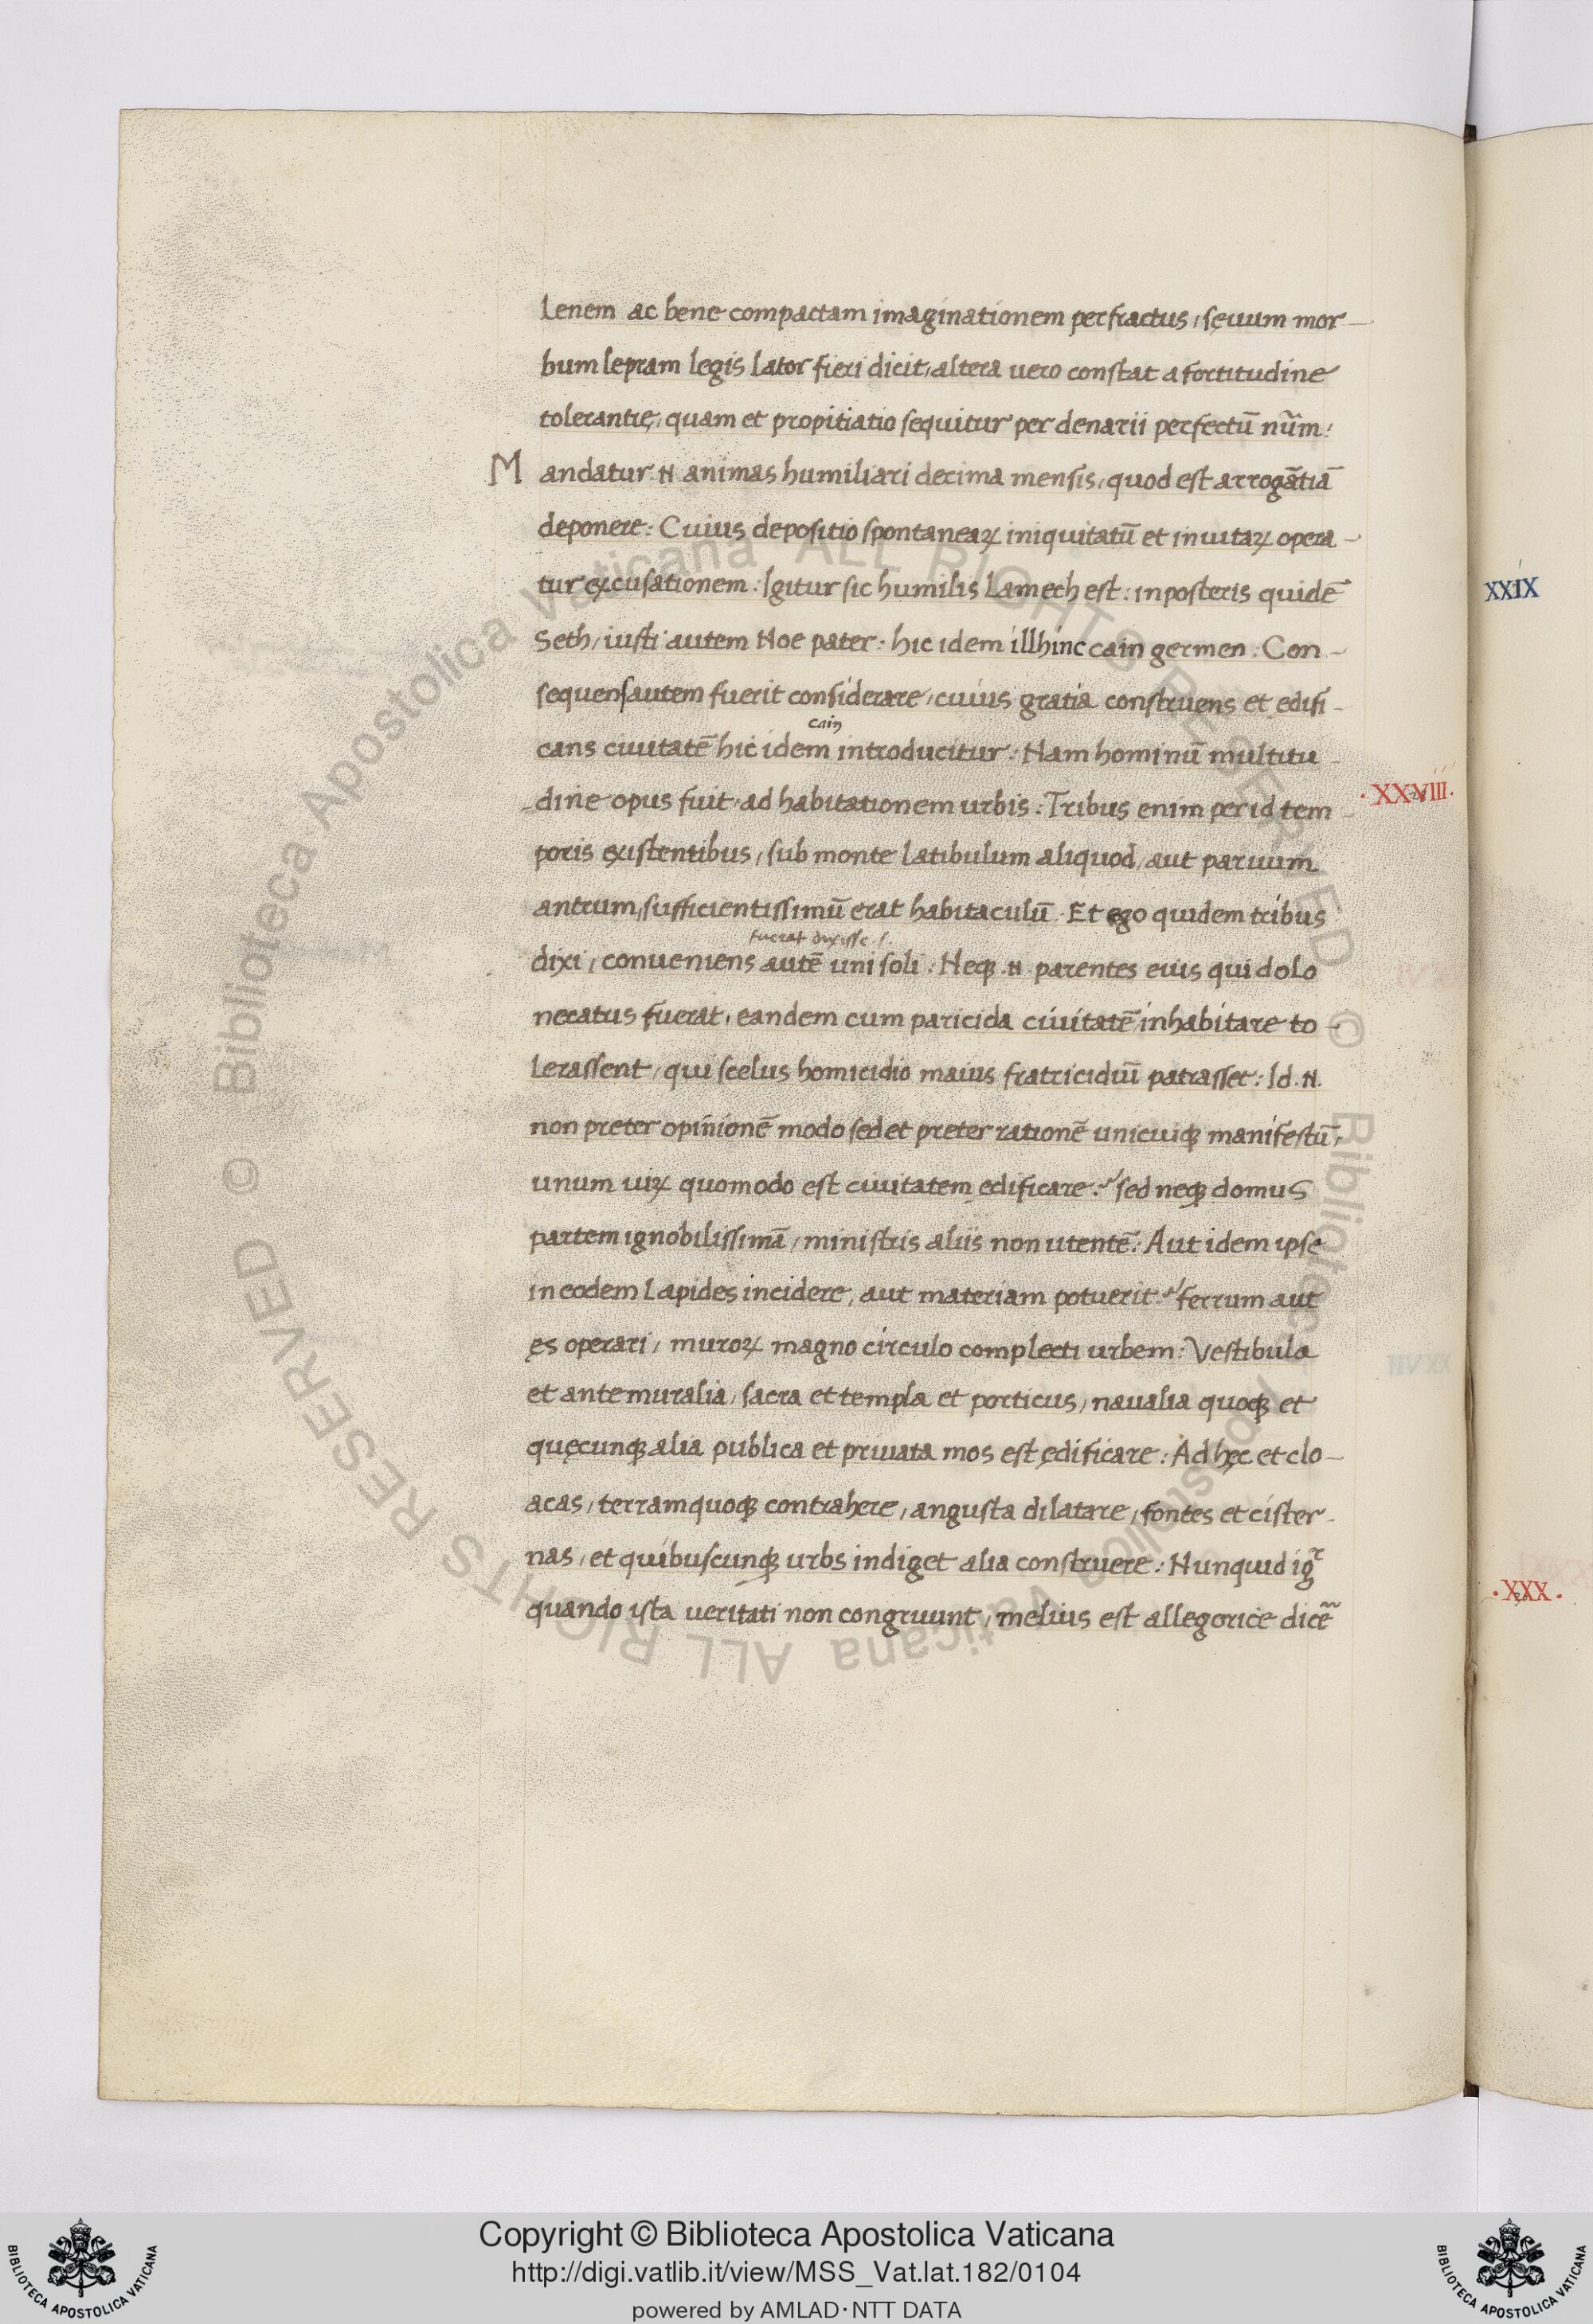 lenem ac bene compactam imaginationem perfractus, sęuum mor-
bum lepram legis lator fieri dicit, altera uero constat a fortitudine
tolerantię, quam et propitiatio sequitur per denarii perfectū nūm:
Mandatur .n. animas humiliari decima mensis, quod est arrogātiā
deponere: Cuius depositio spontaneaꝝ iniquitatū et inuitaꝝ opera-
tur excusationem: Igitur sic humilis Lamech est: in posteris quidē
Seth, iusti autem Noe pater: hic idem illhinc cain germen: Con-
sequens autem fuerit considerare, cuius gratia construens et edifi-
cain
cans ciuitatē hic idem introducitur: Nam hominū multitu-
dine opus fuit ad habitationem urbis: Tribus enim per id tem-
·XXVIII·
poris existentibus, sub monte latibulum aliquod, aut paruum
antrum, sufficientissimū erat habitaculū. Et ego quidem tribus
fuerat dixisse
dixi, conueniens autē uni soli: Neqꝫ .n. parentes eius qui dolo
necatus fuerat, eandem cum paricida ciuitatē inhabitare to-
lerassent, qui scelus homicidio maius fratricidiū patrasset: Id .n.
non preter opinionē modo sed et preter rationē unicuiqꝫ manifestū,
unum uiꝝ quomodo est ciuitatem edificare: sed neqꝫ domus
partem ignobilissimā, ministris aliis non utentē: Aut idem ipse
in eodem lapides incidere, aut materiam potuerit: ferrum aut
ęs operari, muroꝝ magno circulo complecti urbem: Vestibula
et antemuralia, sacra et templa et porticus, naualia quoqꝫ et
quęcunqꝫ alia publica et priuata mos est ędificare: Ad hęc et clo-
acas, terram quoqꝫ contrahere, angusta dilatare, fontes et cister-
nas, et quibuscunqꝫ urbs indiget alia construere: Nunquid igr̄
quando ista ueritati non congruunt, melius est allegorice dicē
XXIX
·XXX·
Copyright © Biblioteca Apostolica Vaticana
http://digi.vatlib.it/view/MSS_Vat.lat.182/0104
powered by AMLAD·NTT DATA
BIBLIOTECA APOSTOLICA VATICANA
BIBLIOTECA APOSTOLICA VATICANA
© Biblioteca Apostolica Vaticana ALL RIGHTS RESERVED
© Biblioteca Apostolica Vaticana ALL RIGHTS RESERVED